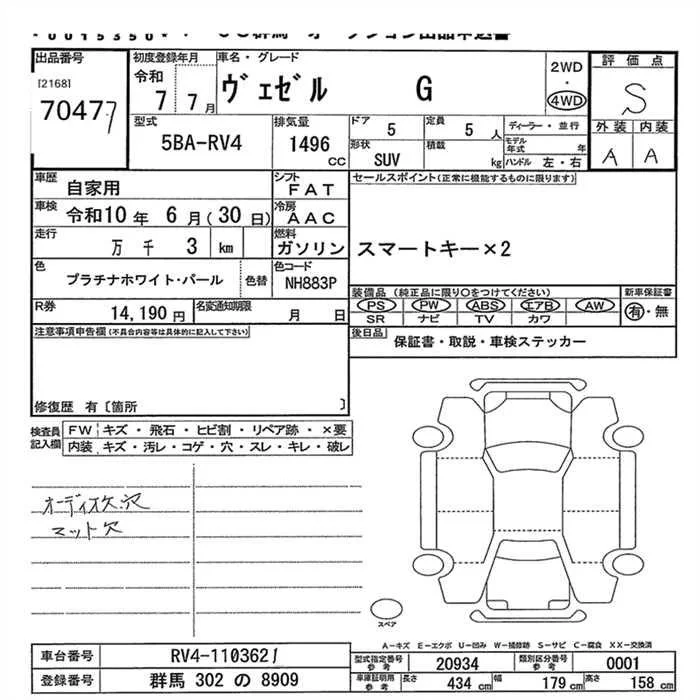 出品番号 初度登録年月 車名・グレード 2WD 評価点
[2168] 令和 ヴェゼル G ・ S
7047 7 7月 4WD 外装 内装
型式 排気量 ドア 5 定員 5人 ディーラー・並行 A A
5BA-RV4 1496 cc 形状 SUV 積載 kg モデル年式 年
ハンドル 左・右
車歴 自家用 シフト FAT セールスポイント(正常に機能するものに限ります)
車検 令和10年 6月(30日) 冷房 AAC
走行 万 千 3 km 燃料 ガソリン スマートキー×2
色 プラチナホワイト・パール 色替 色コード NH883P
装備品(純正品に限り○をつけてください) 新車保証書
R券 14,190円 名変通知期限 月 日 PS PW ABS エアB AW 有・無
SR ナビ TV カワ
注意事項申告欄(不具合内容等は具体的に記入して下さい) 後日品 保証書・取説・車検ステッカー
修復歴 有〔箇所 〕
検査員記入欄 FW キズ・飛石・ヒビ割・リペア跡・×要
内装 キズ・汚レ・コゲ・穴・スレ・キレ・破レ
オーディオ欠.穴
マット欠
スペア
A-キズ E-エクボ U-凹み W-補修跡 S-サビ C-腐食 XX-交換済
車台番号 RV4-1103621 型式指定番号 参考 20934 類別区分番号 参考 0001
登録番号 群馬 302 の 8909 車庫証明用 参考 長さ 434 cm 幅 179 cm 高さ 158 cm